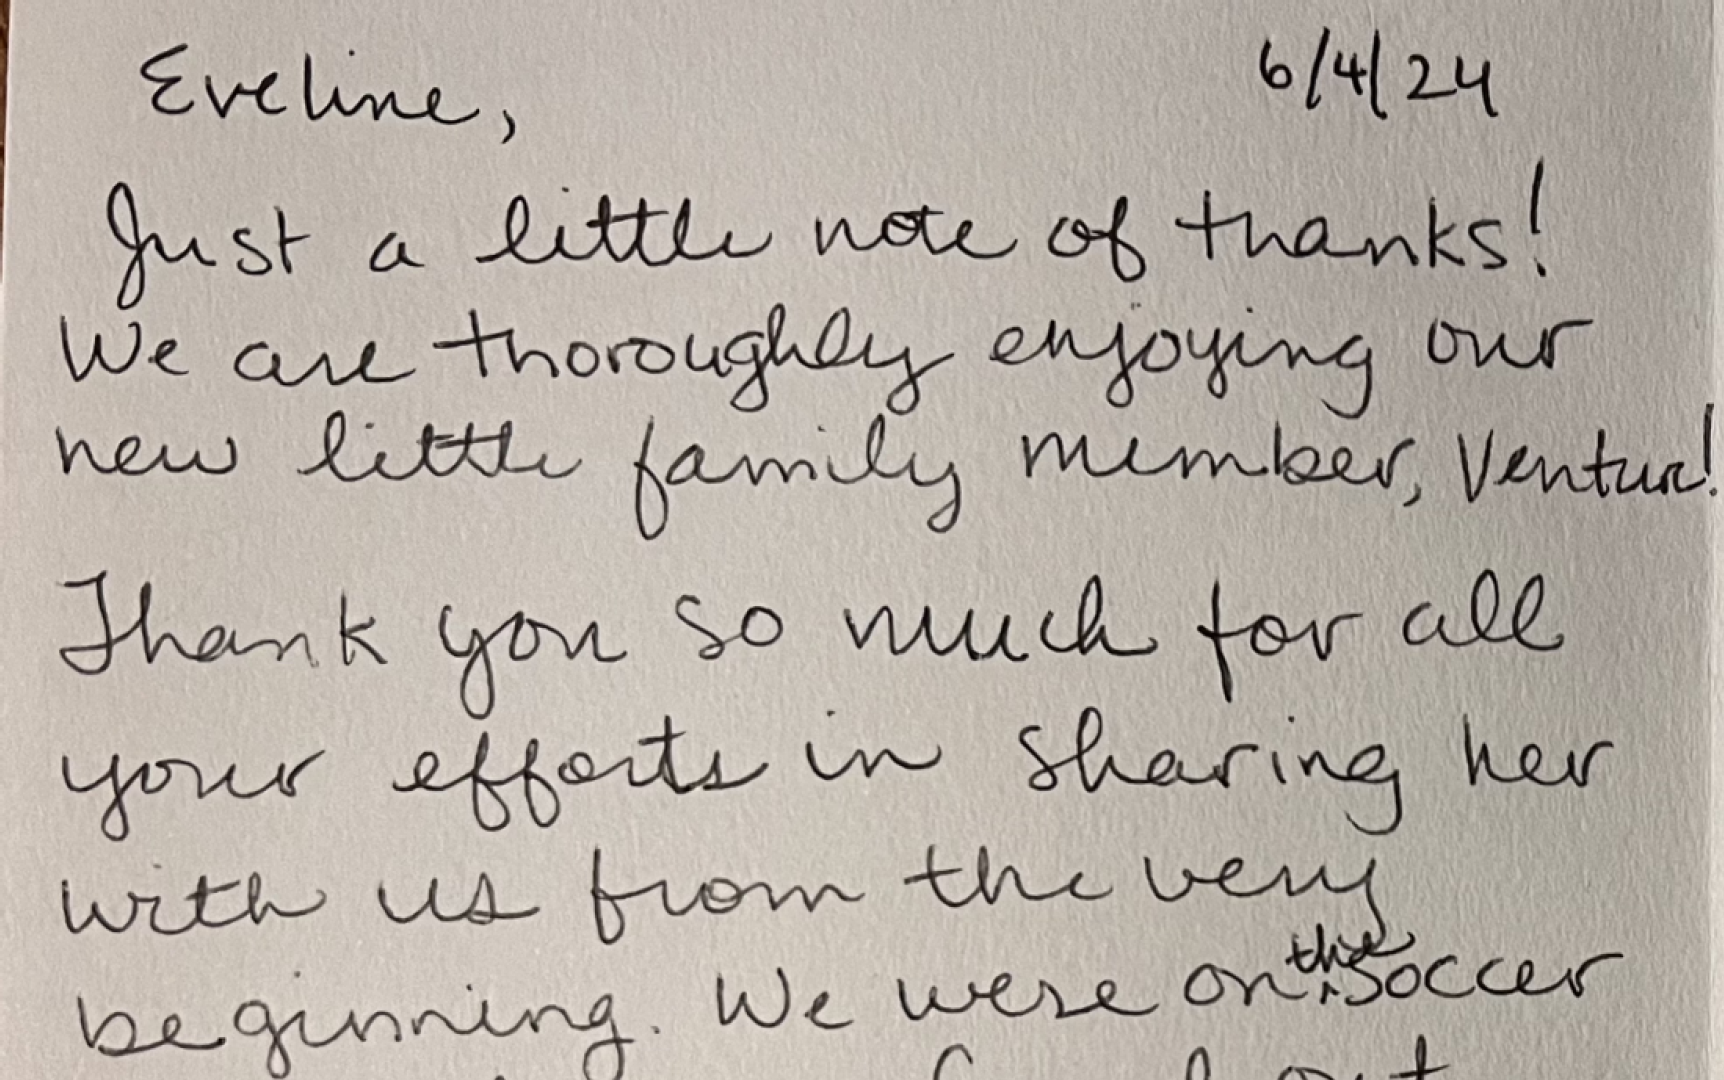 Eveline,
6/4/24
Just a little note of thanks!
We are thoroughly enjoying our
new little family member, Ventura!
Thank you so much for all
your efforts in sharing her
with us from the very
beginning. We were on the soccer